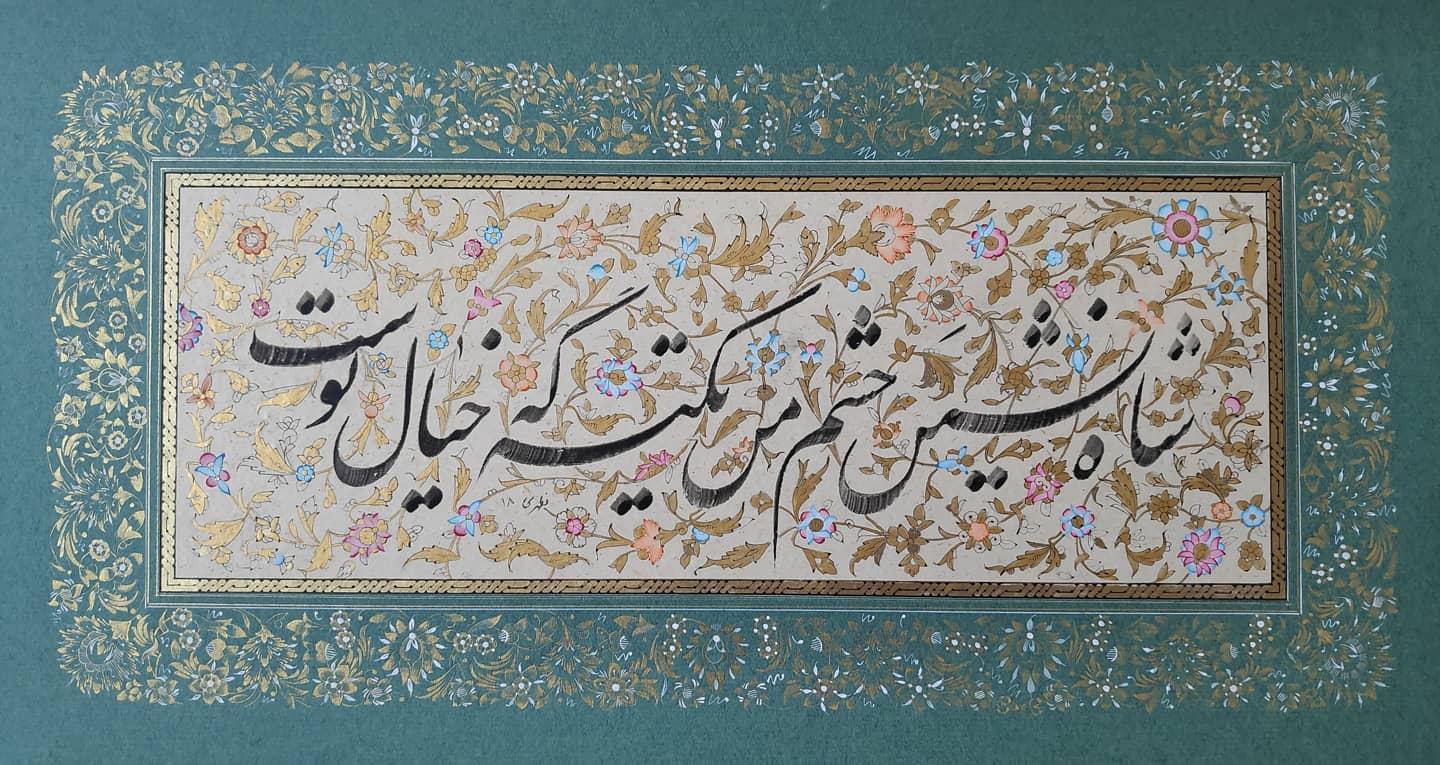 شاه نشین چشم من تکیه که خیال توست